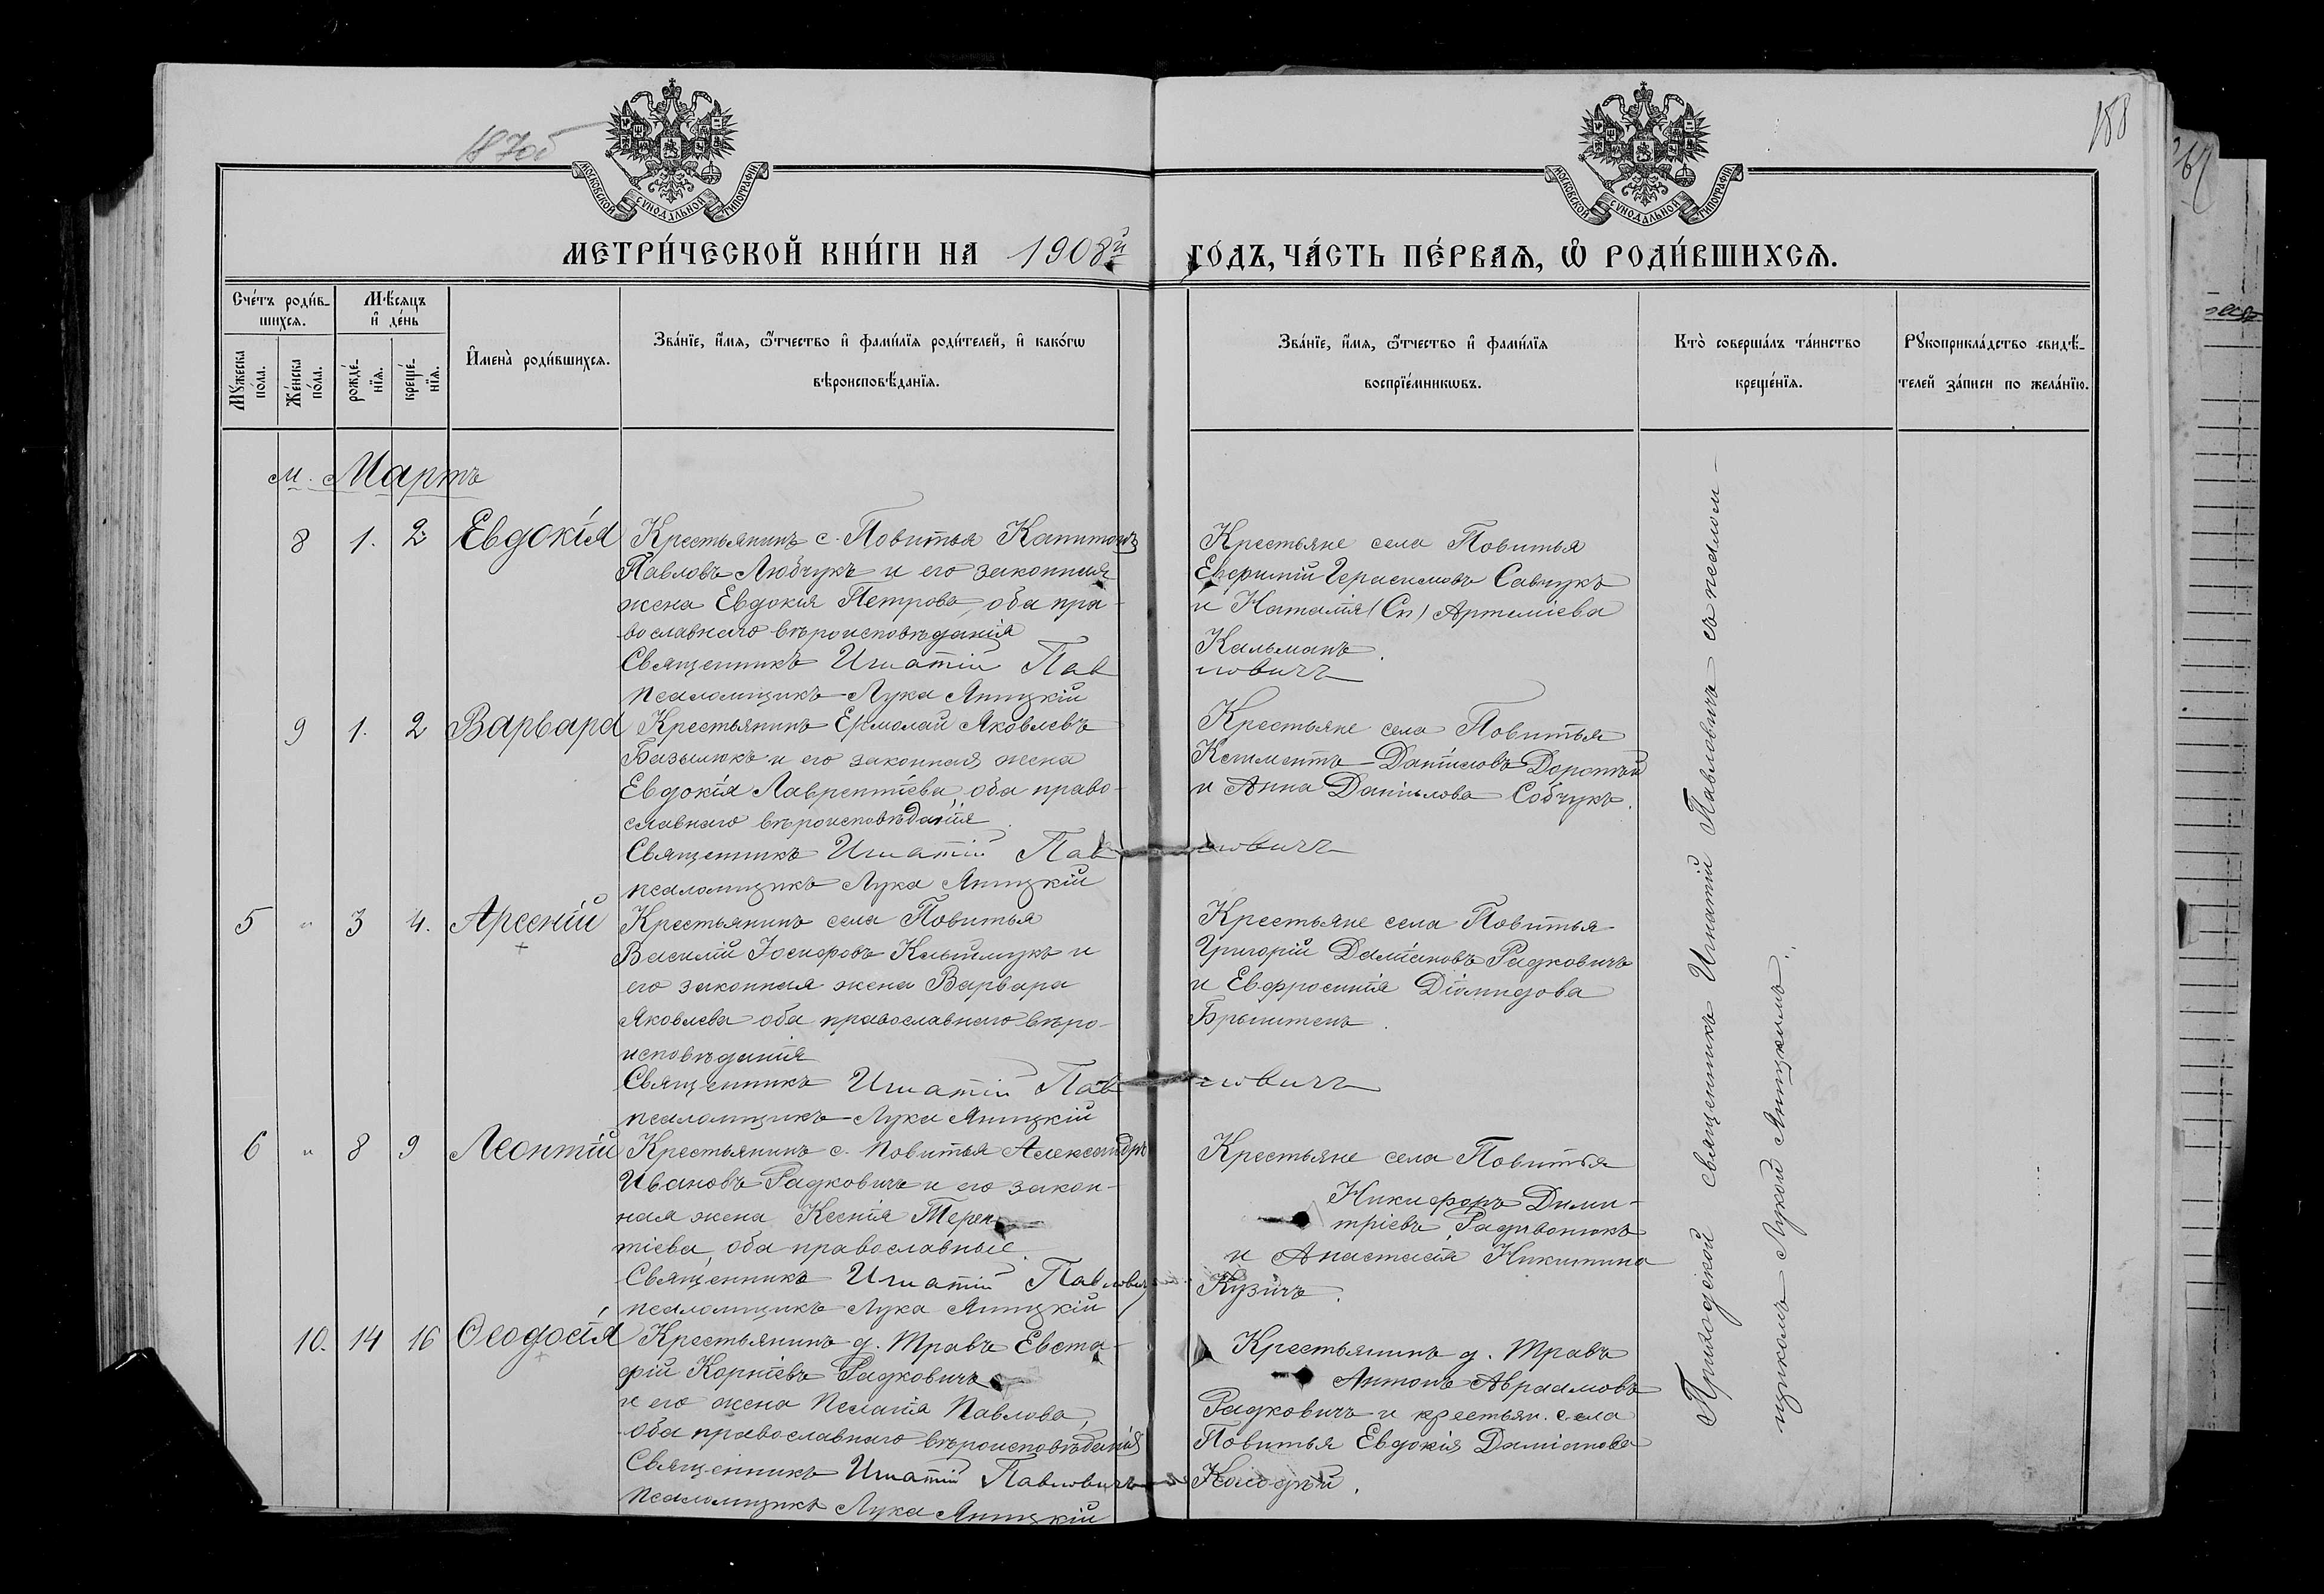 188
МОСКОВСКОЙ СѴНОДАЛЬНОЙ ТИПОГРАФІИ
МОСКОВСКОЙ СѴНОДАЛЬНОЙ ТИПОГРАФІИ
МЕТРИ́ЧЕСКОЙ КНИ́ГИ НА 1908й ГО́ДЪ, ЧА́СТЬ ПЕ́РВАѦ, Ѽ РОДИ́ВШИХСѦ.
Сче́тъ роди́в-
шихсѧ.
Мꙋ́жеска по́ла.
Же́нска по́ла.
Мѣ́сѧцъ и҆ де́нь
рожде́-
нїѧ.
креще́-
нїѧ.
И҆мена̀ роди́вшихсѧ.
Зва́нїе, и҆́мѧ, ѻ҆́тчество и҆ фами́лїѧ роди́телей, и҆ како́гѡ
вѣроисповѣ́данїѧ.
Зва́нїе, и҆́мѧ, ѻ҆́тчество и҆ фами́лїѧ
воспрїе́мникѡвъ.
Кто̀ соверша́лъ та́инство
креще́нїѧ.
Рꙋкоприкла́дство свидѣ́-
телей за́писи по жела́нїю.
м. Мартъ
8 1. 2 Евдокія
Крестьянинъ с. Повитья Капитонъ
Павловъ Любчукъ и его законная
жена Евдокія Петрова, оба пра-
вославнаго вѣроисповѣданія
Священникъ Игнатій Павловичъ
псаломщикъ Лука Яницкій
Крестьяне села Повитья
Евфимій Герасимовъ Савчукъ
и Наталія (Сп) Артеміева
Кальманъ.
9 1. 2 Варвара
Крестьянинъ Ермолай Яковлевъ
Базылюкъ и его законная жена
Евдокія Лаврентіева, оба право-
славнаго вѣроисповѣданія.
Священникъ Игнатій Павловичъ
псаломщикъ Лука Яницкій
Крестьяне села Повитья
Климентъ Даниловъ Доротѣй
и Анна Данилова Собчукъ.
5 " 3 4. Арсеній
Крестьянинъ села Повитья
Василій Іосифовъ и
его законная жена Варвара
Яковлева оба православнаго вѣро-
исповѣданія
Священникъ Игнатій Павловичъ
псаломщикъ Лука Яницкій
Крестьяне села Повитья
Григорій Даміановъ Радковичъ
и Евфросинія Діомидова
6 " 8 9 Леонтій
Крестьянинъ с. Повитья Александръ
Ивановъ Радковичъ и его закон-
ная жена Ксенія Терен-
тіева, оба православные.
Священникъ Игнатій Павловичъ
псаломщикъ Лука Яницкій
Крестьяне села Повитья
Никифоръ Дими-
тріевъ Радивонюкъ
и Анастасія Никитина
Кузичъ.
10. 14 16 Ѳеодосія
Крестьянинъ д. Травъ Евста-
фій Корніевъ Радковичъ
и его жена Пелагія Павлова,
оба православнаго вѣроисповѣданія
Священникъ Игнатій Павловичъ
псаломщикъ Лука Яницкій
Крестьянинъ д. Травъ
Антонъ Авраамовъ
Радковичъ и крестьян. села
Повитья Евдокія Даміанова
Колодѣй.
Приходской священникъ Игнатій Павловичъ съ псалом-
щикомъ Лукой Яницкимъ.